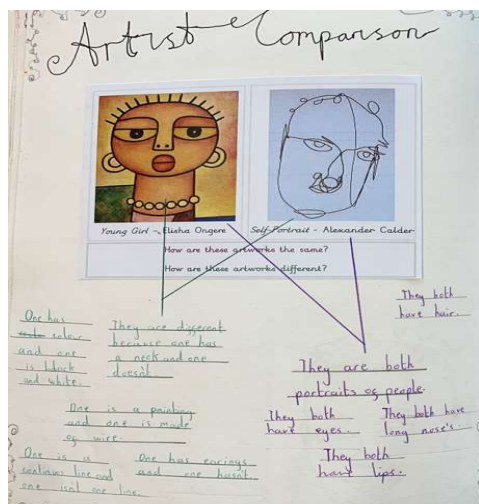 Artist Comparison
Young Girl - Elisha Ongere
Self-Portrait - Alexander Calder
How are these artworks the same?
How are these artworks different?
One has
colour
and one
is black
and white.
They are different
because one has
a neck and one
doesn't.
One is a painting
and one is made
of wire.
One is a
continus line and
one isn't one line.
One has earings
and one hasn't
They both
have hair.
They are both
portraits of people.
They both
have eyes.
They both have
long nose's.
They both
have lips.